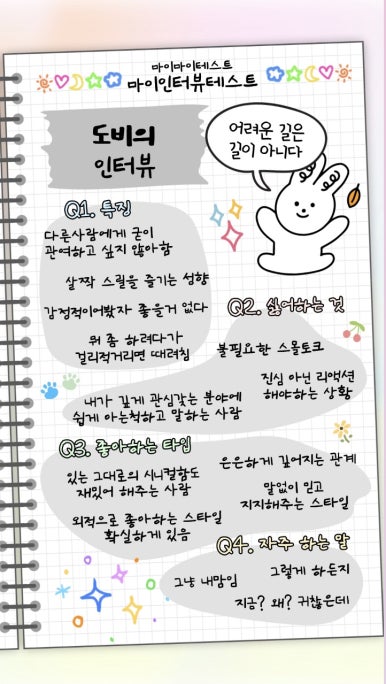 마이마이테스트
마이인터뷰테스트
도비의
인터뷰
어려운 길은
길이 아니다
Q1. 특징
다른사람에게 굳이
관여하고 싶지 않아함
살짝 스릴을 즐기는 성향
감정적이어봤자 좋을거 없다
뭐 좀 하려다가
걸리적거리면 때려침
Q2. 싫어하는 것
불필요한 스몰토크
진심 아닌 리액션
해야하는 상황
내가 깊게 관심갖는 분야에
쉽게 아는척하고 말하는 사람
Q3. 좋아하는 타입
있는 그대로의 시니컬함도
재밌어 해주는 사람
은은하게 깊어지는 관계
말없이 믿고
지지해주는 스타일
외적으로 좋아하는 스타일
확실하게 있음
Q4. 자주 하는 말
그냥 내맘임
그렇게 하든지
지금? 왜? 귀찮은데